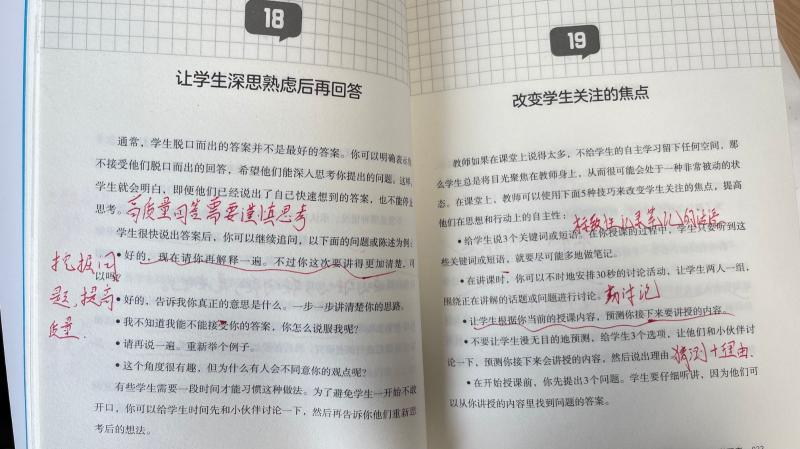 18
让学生深思熟虑后再回答
通常，学生脱口而出的答案并不是最好的答案。你可以明确表示
不接受他们脱口而出的回答，希望他们能深入思考你提出的问题。这样，
学生就会明白，即便他们已经说出了自己快速想到的答案，也不能停止
思考。高质量回答需要谨慎思考
学生很快说出答案后，你可以继续追问，以下面的问题或陈述为例：
• 好的，现在请你再解释一遍。不过你这次要讲得更加清楚，可
以吗？
挖掘问
题，提高
质量
• 好的，告诉我你真正的意思是什么。一步一步讲清楚你的思路。
• 我不知道我能不能接受你的答案，你怎么说服我呢？
• 请再说一遍。重新举个例子。
• 这个角度很有趣，但为什么有人会不同意你的观点呢？
有些学生需要一段时间才能习惯这种做法。为了避免学生一开始不敢
开口，你可以给学生时间先和小伙伴讨论一下，然后再告诉你他们重新思
考后的想法。
19
改变学生关注的焦点
教师如果在课堂上说得太多，不给学生的自主学习留下任何空间，那
么学生总是将目光聚焦在教师身上，从而很可能会处于一种非常被动的状
态。在课堂上，教师可以使用下面5种技巧来改变学生关注的焦点，提高
他们在思想和行动上的自主性：
记录笔记
• 给学生说3个关键词或短语。在你授课的过程中，学生只要听到这
些关键词或短语，就要尽可能多地做笔记。
• 在讲课时，你可以不时地安排30秒的讨论活动，让学生两人一组，
围绕正在讲解的话题或问题进行讨论。
• 让学生根据你当前的授课内容，预测你接下来要讲授的内容。
• 不要让学生漫无目的地预测，给学生3个选项，让他们和小伙伴讨
论一下，预测你接下来会讲授的内容，然后说出理由。猜测+理由
• 在开始授课前，你先提出3个问题。学生要仔细听讲，因为他们可
以从你讲授的内容里找到问题的答案。